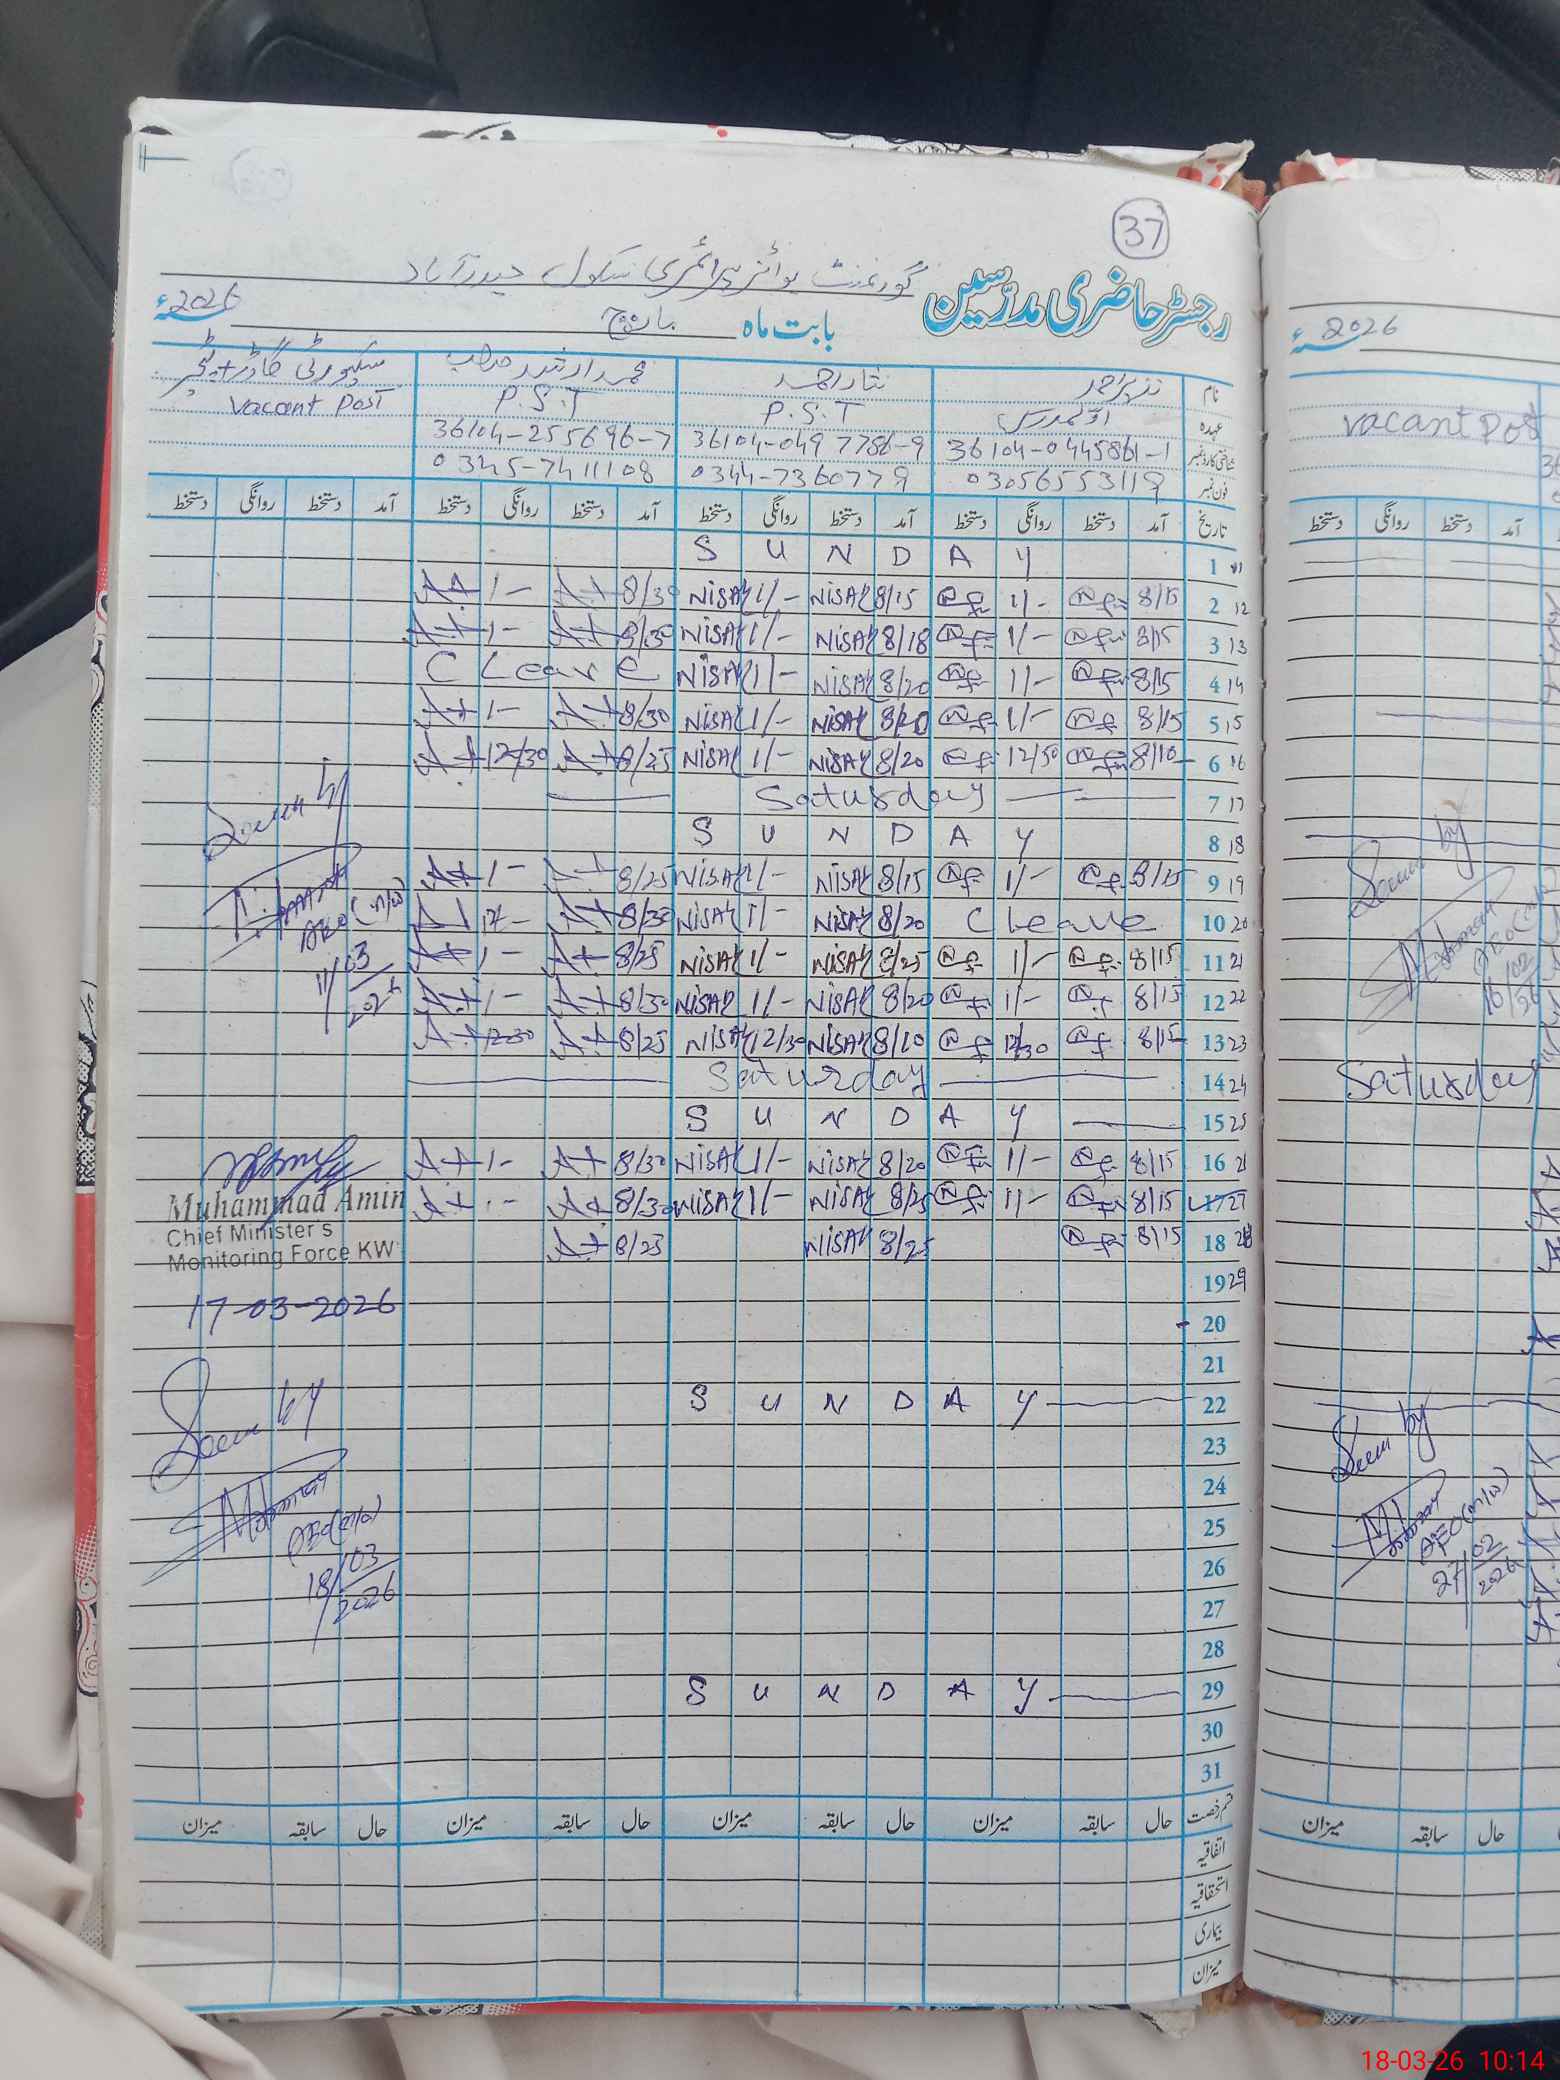 37
رجسٹر حاضری مدرّسین گورنمنٹ بوائز پرائمری سکول حیدرآباد
بابت ماہ مارچ 2026ء
نام نذیر احمد نثار احمد محمد ارشد
عہدہ اوّل مدرس P.S.T P.S.T Vacant Post
شناختی کارڈ نمبر 36104-0445861-1 36104-0497786-9 36104-255696-7
فون نمبر 03056553119 0344-7360779 0345-7411108
تاریخ آمد دستخط روانگی دستخط آمد دستخط روانگی دستخط آمد دستخط روانگی دستخط آمد دستخط روانگی دستخط
1 SUNDAY
2 12 8/15 1/- 8/15 NISAR 1/- NISAR 8/30 1-
3 13 8/15 1/- 8/18 NISAR 1/- NISAR 8/30 1-
4 14 8/15 1/- 8/20 NISAR 1/- NISAR C Leave
5 15 8/15 1/- 8/20 NISAR 1/- NISAR 8/30 1-
6 16 8/10 12/50 8/20 NISAR 1/- NISAR 8/25 12/30
7 17 Saturday
8 18 SUNDAY
9 19 8/15 1/- 8/15 NISAR 1/- NISAR 8/25 1-
10 20 C Leave 8/20 NISAR 1/- NISAR 8/30
11 21 8/15 1/- 8/25 NISAR 1/- NISAR 8/25 1-
12 22 8/15 1/- 8/20 NISAR 1/- NISAR 8/30 1-
13 23 8/15 12/30 8/10 NISAR 12/30 NISAR 8/25 12-30
14 24 Saturday
15 25 SUNDAY
16 8/15 1/- 8/20 NISAR 1/- NISAR 8/30 1-
17 27 8/15 1/- 8/25 NISAR 1/- NISAR 8/30
18 28 8/15 8/25 NISAR 8/25
19 29
20
21
22 SUNDAY
23
24
25
26
27
28
29 SUNDAY
30
31
قسم رخصت حال سابقہ میزان حال سابقہ میزان حال سابقہ میزان حال سابقہ میزان
اتفاقیہ
استحقاقیہ
بیماری
میزان
Seen by
AEO (M/W)
11/03
2026
Muhammad Amin
Chief Minister's
Monitoring Force KW
17-03-2026
Seen by
AEO (M/W)
18/03
2026
2026ء
Vacant Post
دستخط روانگی دستخط آمد
Seen by
AEO
16/02
Saturday
Seen by
AEO (M/W)
27/02
2026
میزان سابقہ حال
18-03-26 10:14